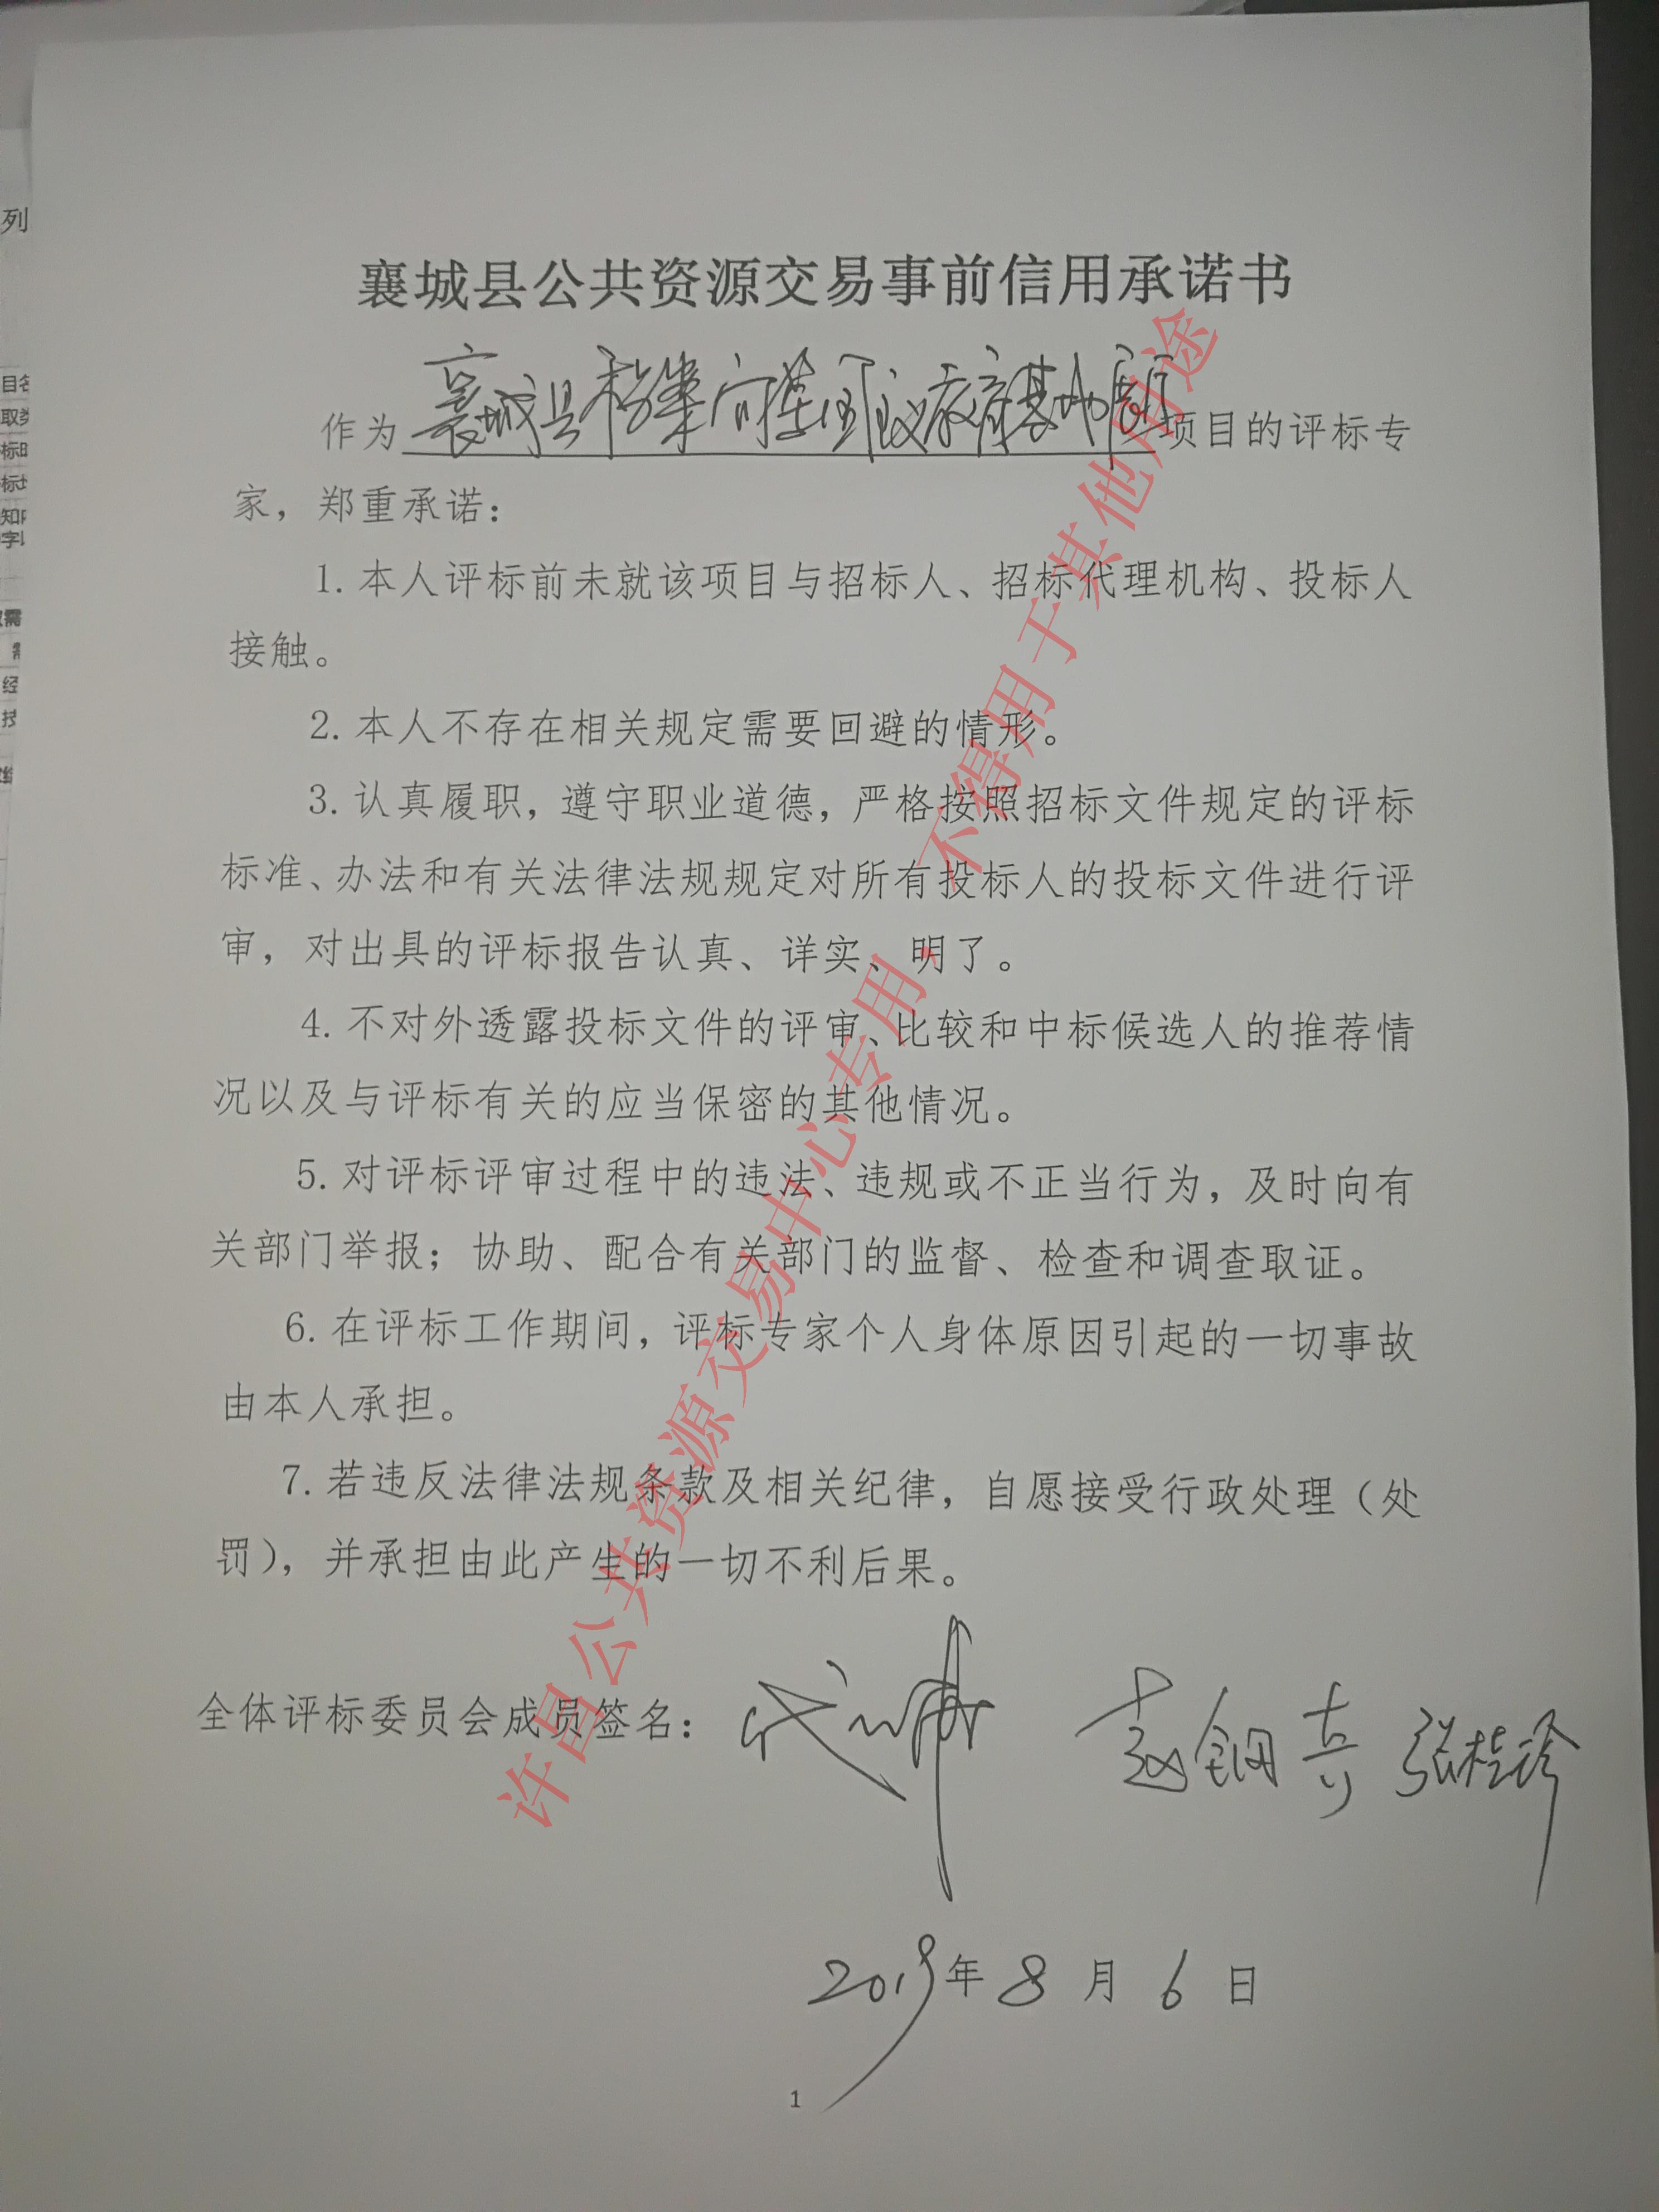 襄城县公共资源交易事前信用承诺书
作为襄城县档案馆教育基地项目的评标专
家，郑重承诺：
1. 本人评标前未就该项目与招标人、招标代理机构、投标人
接触。
2. 本人不存在相关规定需要回避的情形。
3. 认真履职，遵守职业道德，严格按照招标文件规定的评标
标准、办法和有关法律法规规定对所有投标人的投标文件进行评
审，对出具的评标报告认真、详实、明了。
4. 不对外透露投标文件的评审、比较和中标候选人的推荐情
况以及与评标有关的应当保密的其他情况。
5. 对评标评审过程中的违法、违规或不正当行为，及时向有
关部门举报；协助、配合有关部门的监督、检查和调查取证。
6. 在评标工作期间，评标专家个人身体原因引起的一切事故
由本人承担。
7. 若违反法律法规条款及相关纪律，自愿接受行政处理（处
罚），并承担由此产生的一切不利后果。
全体评标委员会成员签名： 张桂珍
2019年 8 月 6 日
1
许昌公共资源交易中心专用，不得用于其他用途